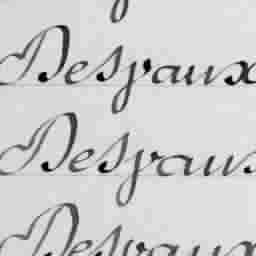 Desjaux
Desjaux
Desjaux